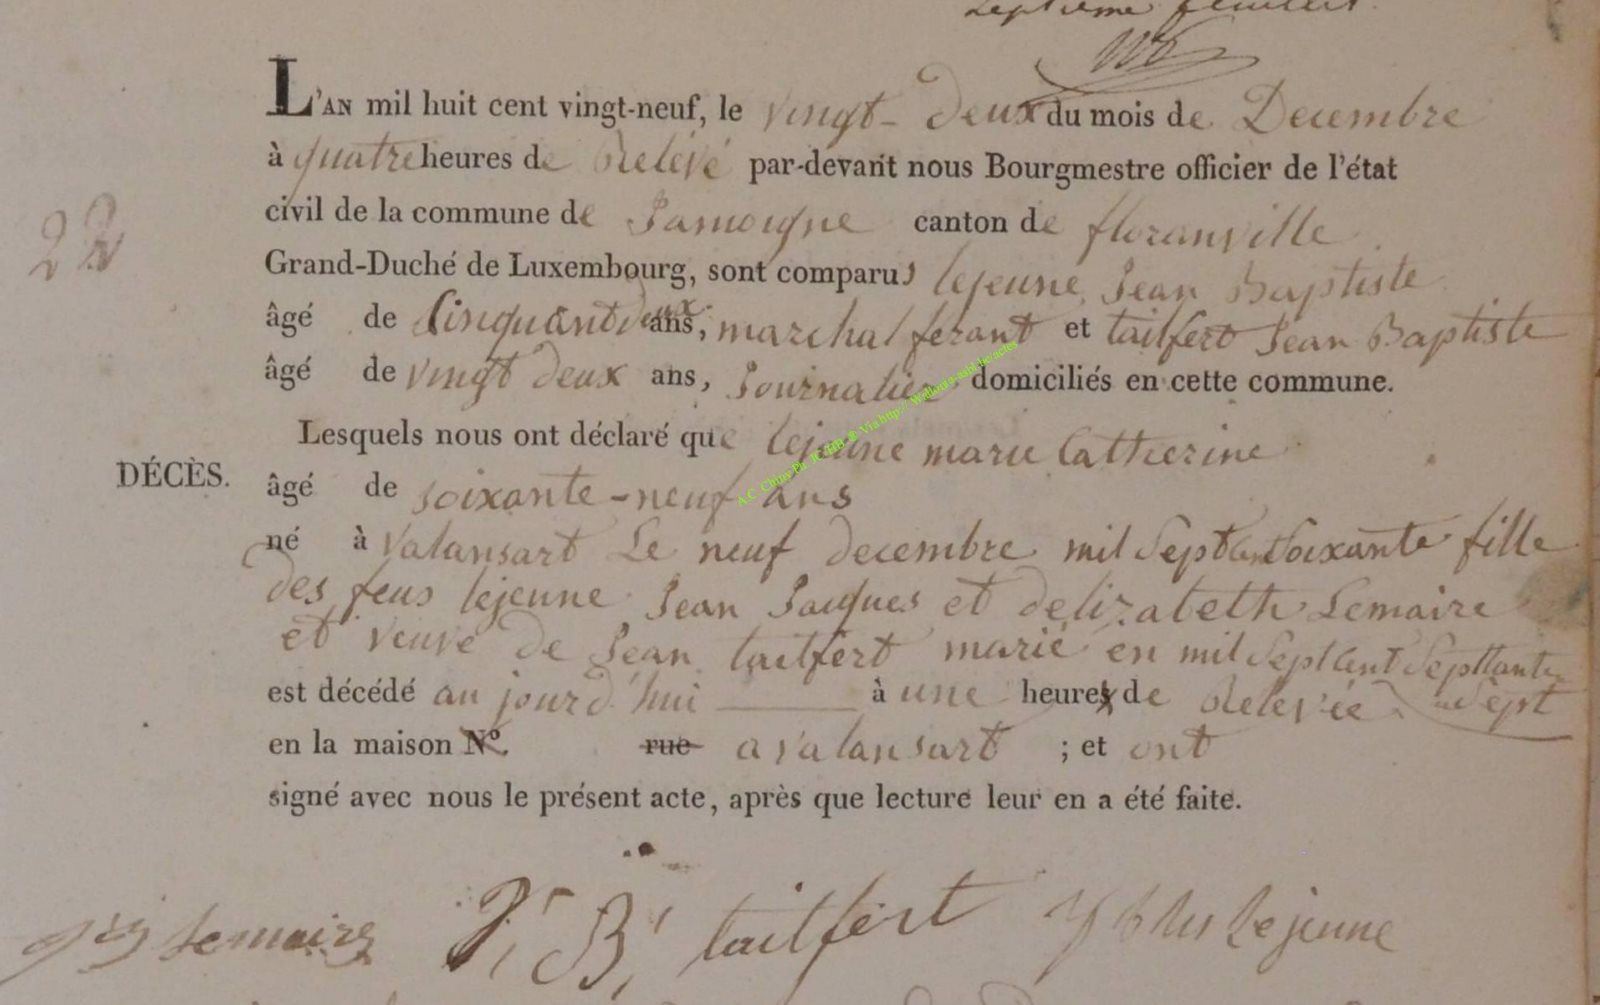 Septieme feuillet.
L'AN mil huit cent vingt-neuf, le vingt-deux du mois de Decembre
à quatre heures de Relevé par-devant nous Bourgmestre officier de l'état
22
civil de la commune de Jamoigne canton de floranville
Grand-Duché de Luxembourg, sont comparus lejeune Jean Baptiste
âgé de Cinquante deux ans, marchal ferant et tailfert Jean Baptiste
âgé de vingt deux ans, Journalier domiciliés en cette commune.
A.C. Chiny Via http://
Lesquels nous ont déclaré que lejeune marie Catherine
DÉCÈS.
âgé de soixante-neuf ans
né à Valansart Le neuf decembre mil Sept Cent Soixante fille
des feus lejeune Jean Jacques et delizabeth Lemaire
et veuve de Jean tailfert marié en mil Sept Cent Septtante
Sept
est décédé au jourd'hui à une heures de Relevée
en la maison N°. rue a valansart ; et ont
signé avec nous le présent acte, après que lecture leur en a été faite.
Lemaire J. B. tailfert Lejeune